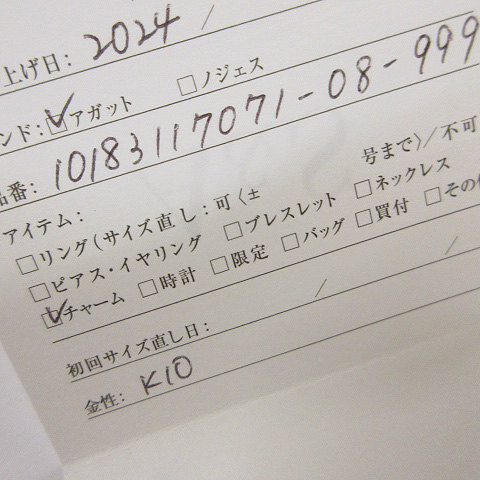 上げ日: 2024 /
ンド: ☑アガット □ノジェス
品番: 10183117071-08-999
アイテム:
□リング(サイズ直し:可〈± 号まで〉/不可
□ピアス・イヤリング □ブレスレット □ネックレス
☑チャーム □時計 □限定 □バッグ □買付 □その他
初回サイズ直し日: / /
金性: K10